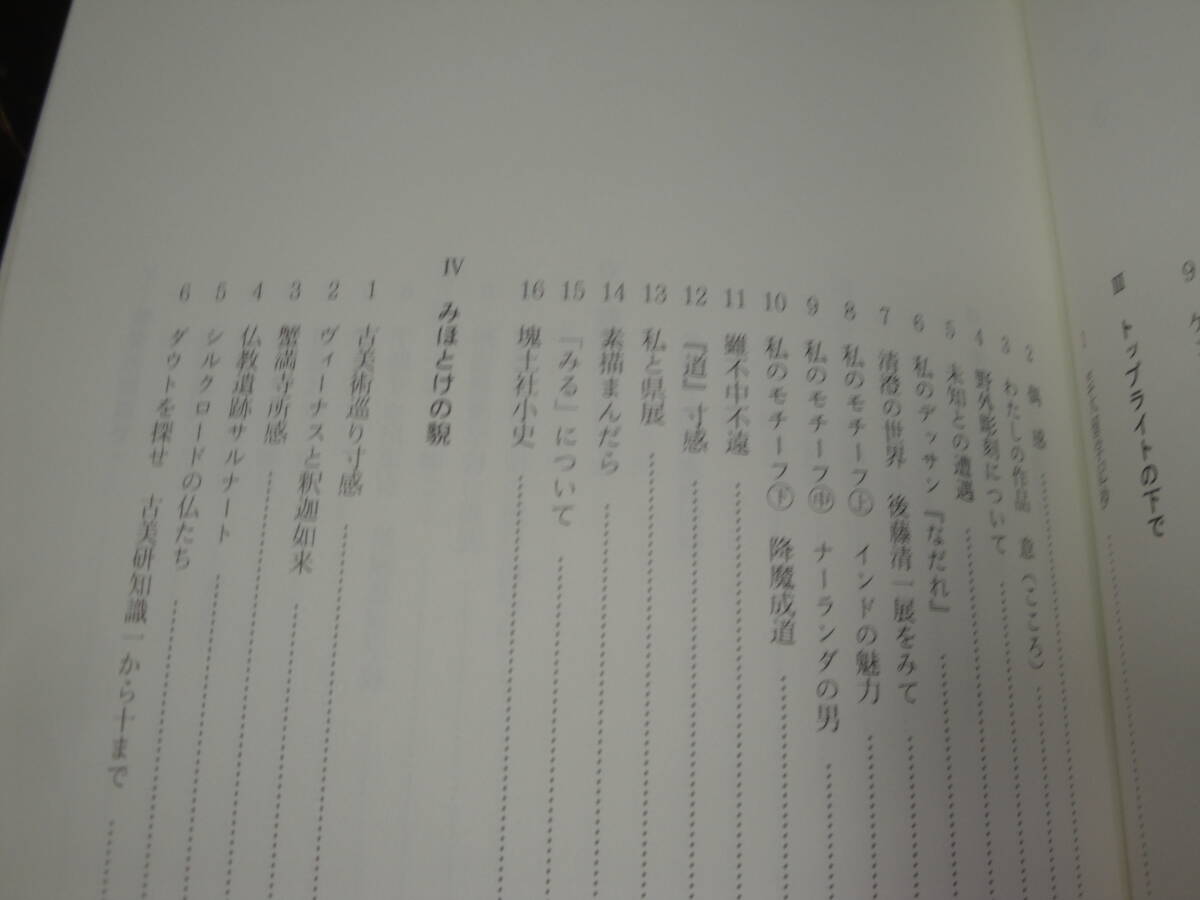 9
Ⅲ トップライトの下で
1
2
3 わたしの作品 意(こころ)
4 野外彫刻について
5 未知との遭遇
6 私のデッサン『なだれ』
7 清澄の世界 後藤清一展をみて
8 私のモチーフ㊤ インドの魅力
9 私のモチーフ㊥ ナーランダの男
10 私のモチーフ㊦ 降魔成道
11 雖不中不遠
12 『道』寸感
13 私と県展
14 素描まんだら
15 「みる」について
16 塊土社小史
Ⅳ みほとけの貌
1 古美術巡り寸感
2 ヴィーナスと釈迦如来
3 蟹満寺所感
4 仏教遺跡サルナート
5 シルクロードの仏たち
6 ダウトを探せ 古美研知識一から十まで